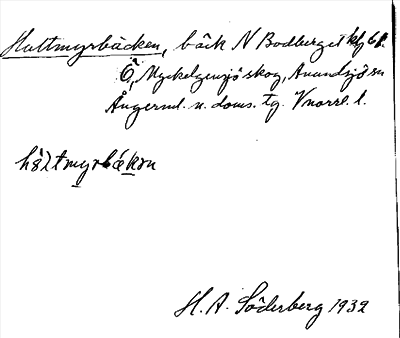 Hattmyrbäcken, bäck N Bodberget kfl 61.
Ö, Myckelgensjö skog, Anundsjö sn
Ångerml. n. doms. tg. Vnorrl. l.
håltmyrbäkǝn
H. A. Söderberg 1932